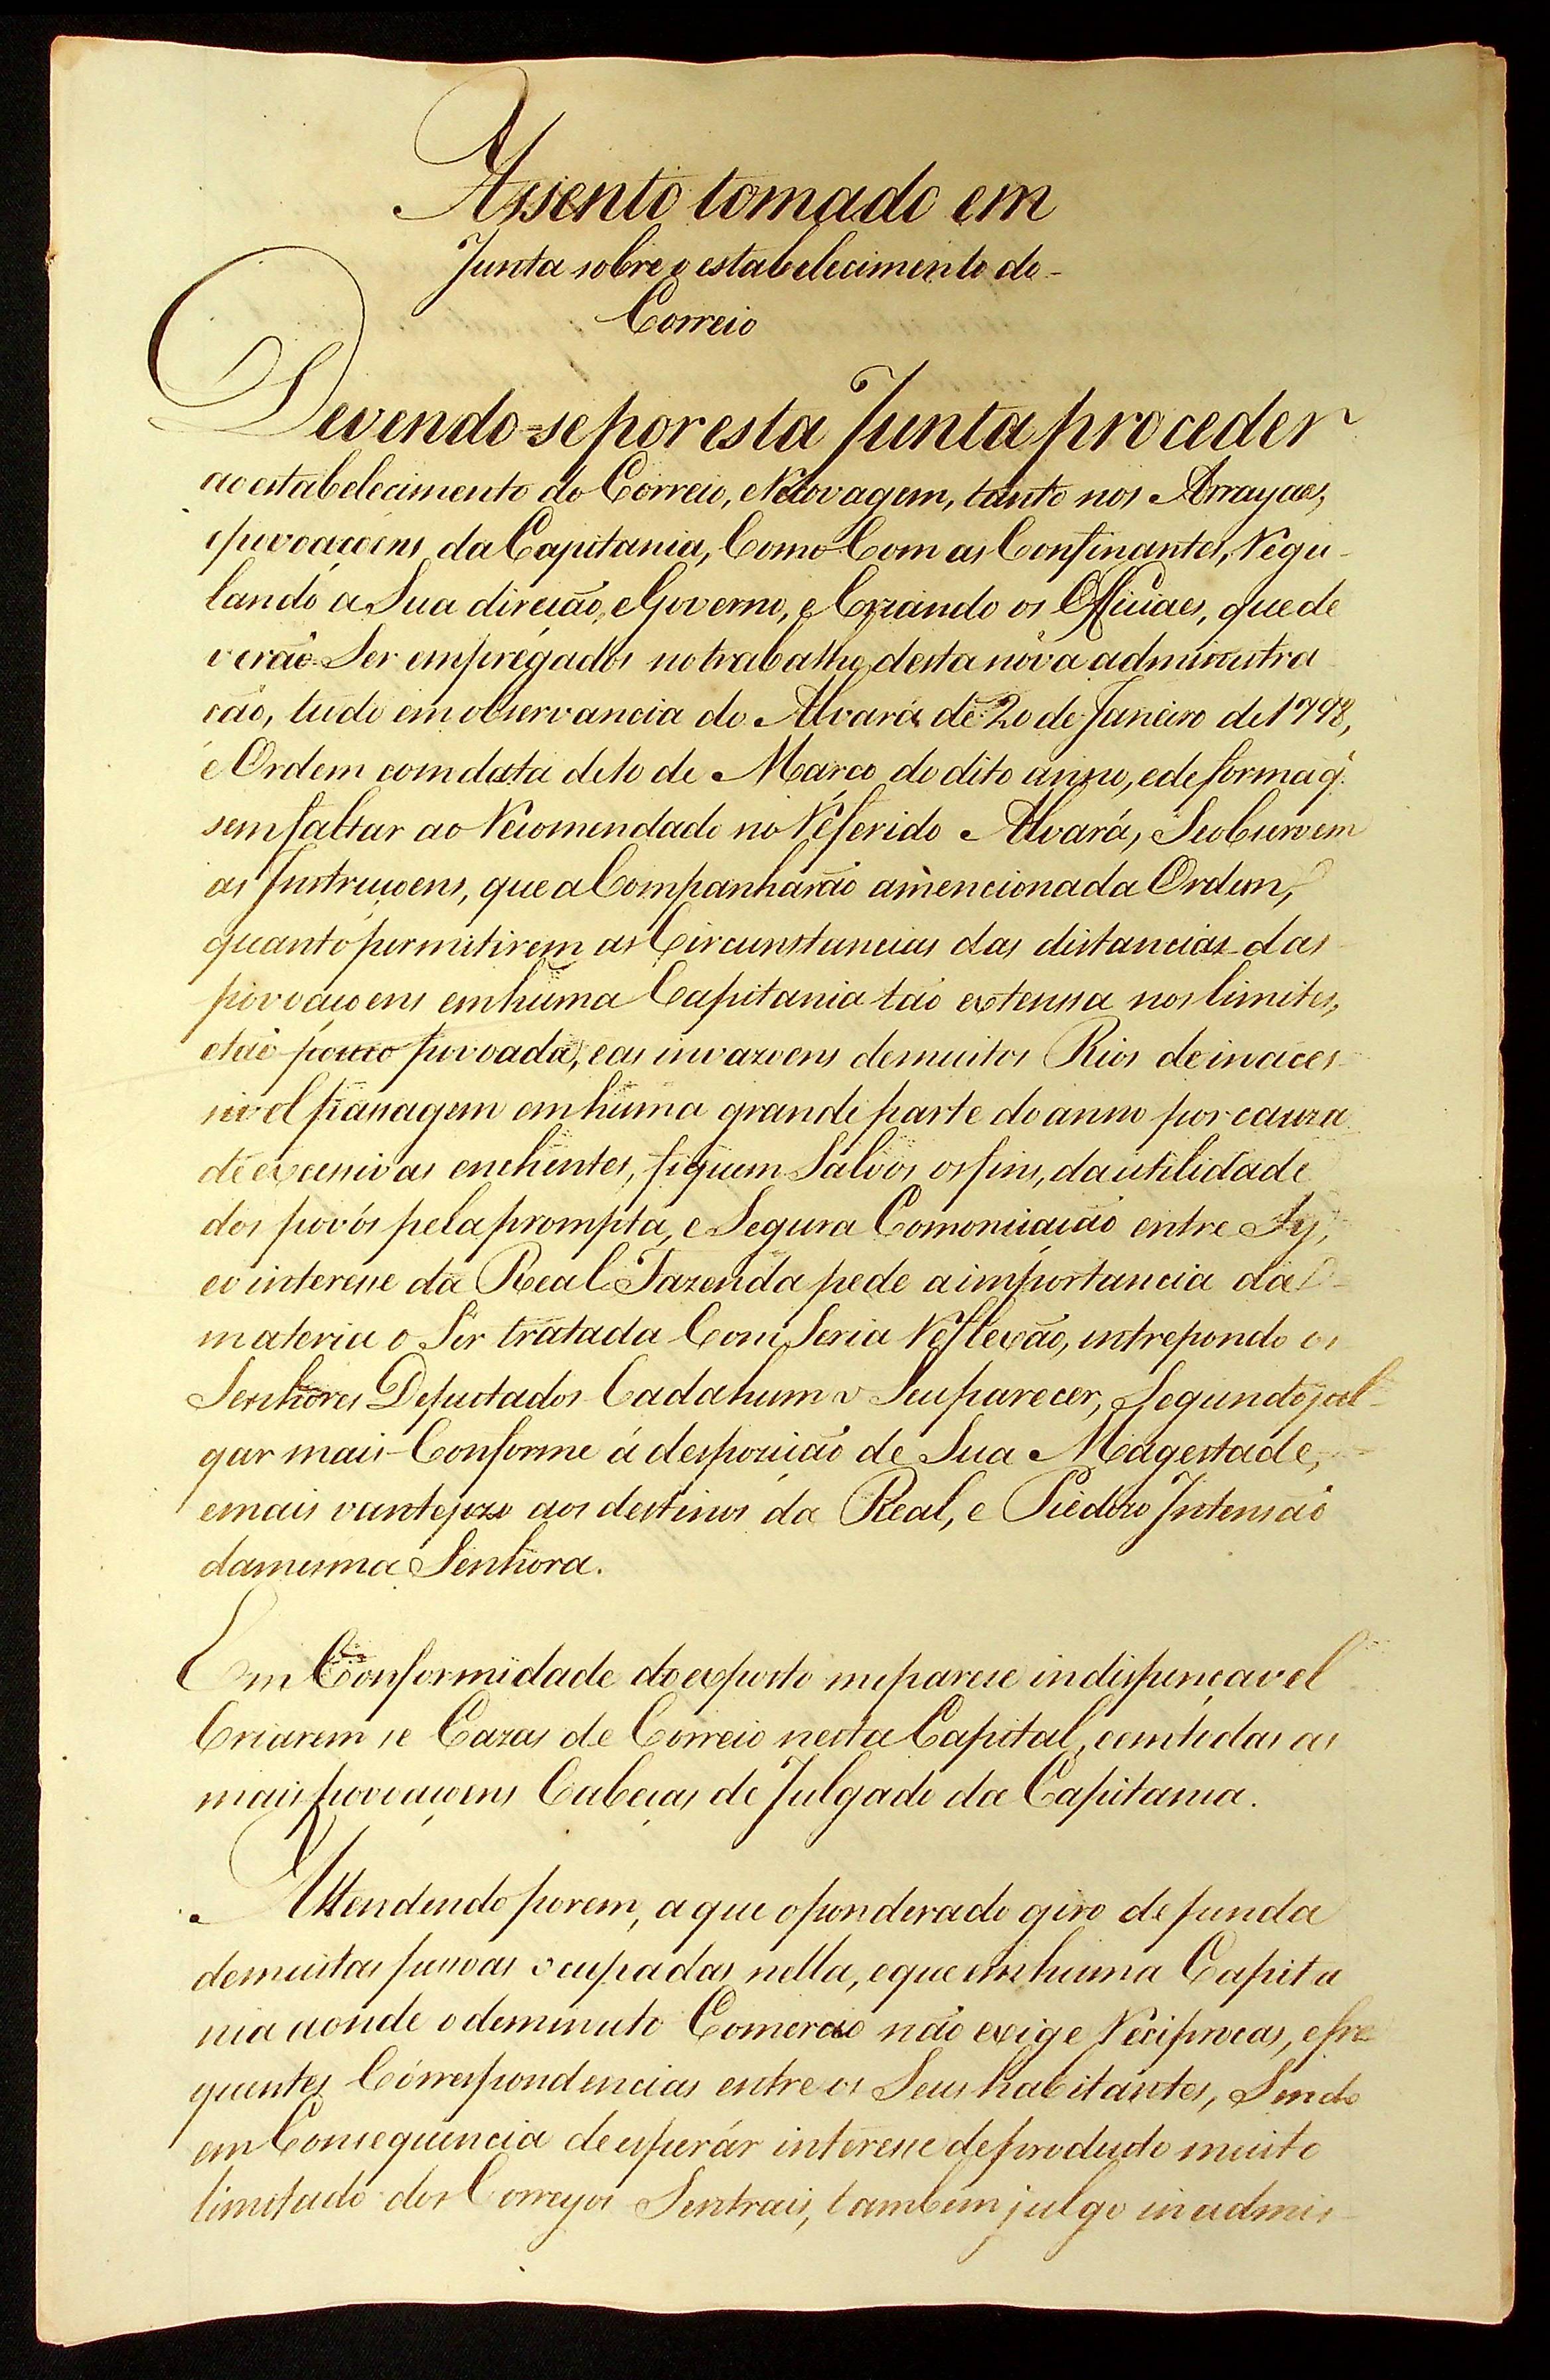 Assento tomado em
Junta sobre o estabelecimento do
Correio
Devendo-se por esta Junta proceder
ao estabelecimento do Correio, e Recovagem, tanto nos Arrayaes,
e povoaçoens da Capitania, Como Com as Confinantes, Regu-
lando a Sua direção, e Governo, e Criando os Officiaes, que de
verão Ser empregados no trabalho desta nova administra
ção, tudo em observancia do Alvará de 20 de Janeiro de 1798,
e Ordem com data de 10 de Março do dito anno, e de forma q̃
sem faltar ao Recomendado no Referido Alvará, Se observem
as Instruçoens, que aCompanharão a mencionada Ordem,
quanto permitirem as Circunstancias das distancias das
povoaçoens em huma Capitania tão extensa nos limites,
e tão pouco povoada, e as invazoens de muitos Rios de inaces-
sivel passagem em huma grande parte do anno por cauza
de excessivas enchentes, fiquem Salvos os fins, da utilidade
dos povos pela prompta, e Segura Comonicação entre Sy,
e o interesse da Real Fazenda pede a importancia da
materia o Ser tratada Com Seria Reflexão, intrepondo os
Senhores Deputados Cada hum o Seu parecer, Segundo jul-
gar mais Conforme á despozição de Sua Magestade,
e mais vantejozo aos destinos da Real, e Piedozo Intensão
da mesma Senhora.
Em Conformidade do exposto me parese indispençavel
Criarem se Cazas de Correio nesta Capital, e em todas as
mais povoaçoens Cabeças de Julgado da Capitania.
Attendendo porem, a que o ponderado giro depende
de muitas pessoas ocupadas nella, e que em huma Capita
nia aonde o deminuto Comercio não exige Reciprocas, e fre
quentes Correspondencias entre os Seus habitantes, Sendo
em Consequencia de esperár interesse de producto muito
limitado dos Correyos Sentrais, tambem julgo inadmis-